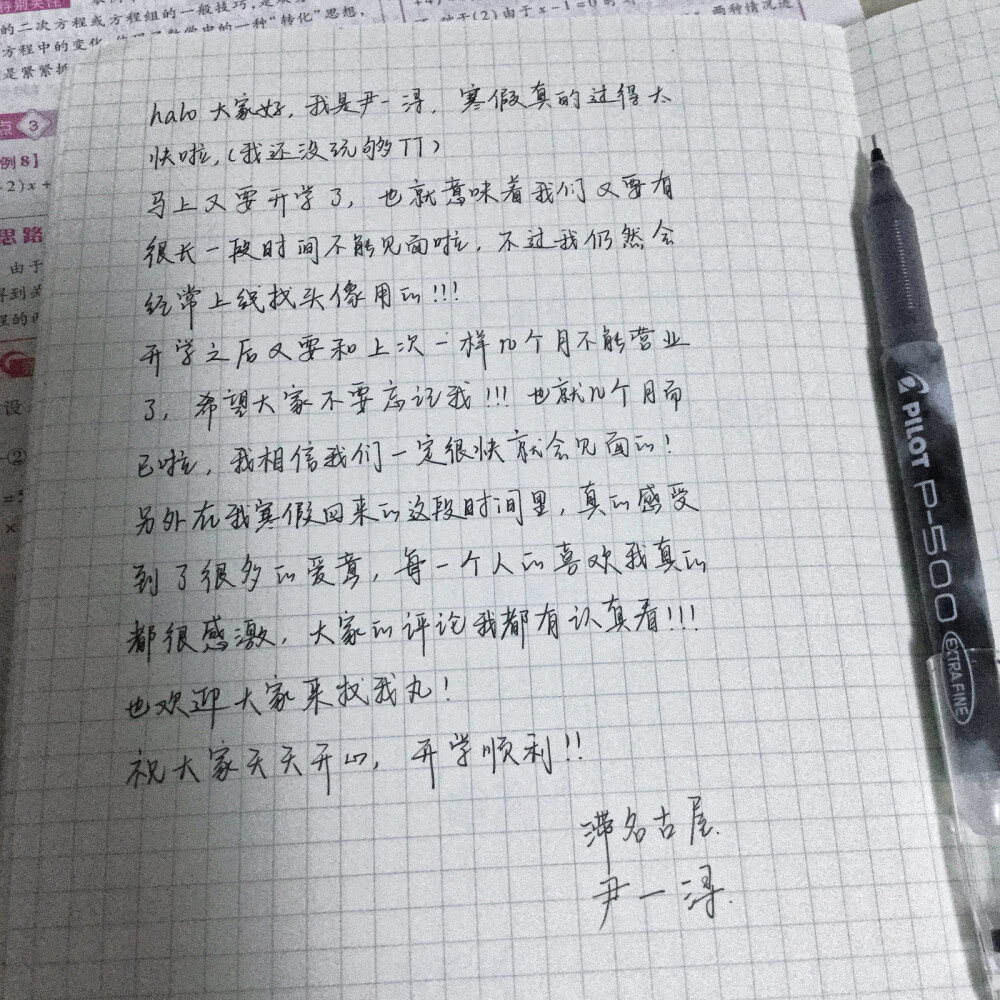 特别关注
的二次方程或方程组的一般技巧,是
方程中的变化
数学中的一种“转化”思想,
是紧紧抓
对于(2)由于x-1=0
两种情况进
点 3
例8】
-2)x+
思路
由于
得到关
程的
设
②
halo 大家好,我是尹一浔,寒假真的过得太
快啦,(我还没玩够TT)
马上又要开学了,也就意味着我们又要有
很长一段时间不能见面啦,不过我仍然会
经常上线找头像用的!!!
开学之后又要和上次一样几个月不能营业
了,希望大家不要忘记我!!!也就几个月而
已啦,我相信我们一定很快就会见面的!
另外在我寒假回来的这段时间里,真的感受
到了很多的爱意,每一个人的喜欢我真的
都很感激,大家的评论我都有认真看!!!
也欢迎大家来找我丸!
祝大家天天开心,开学顺利!!
滞名古屋.
尹一浔.
PILOT P-500 EXTRA FINE